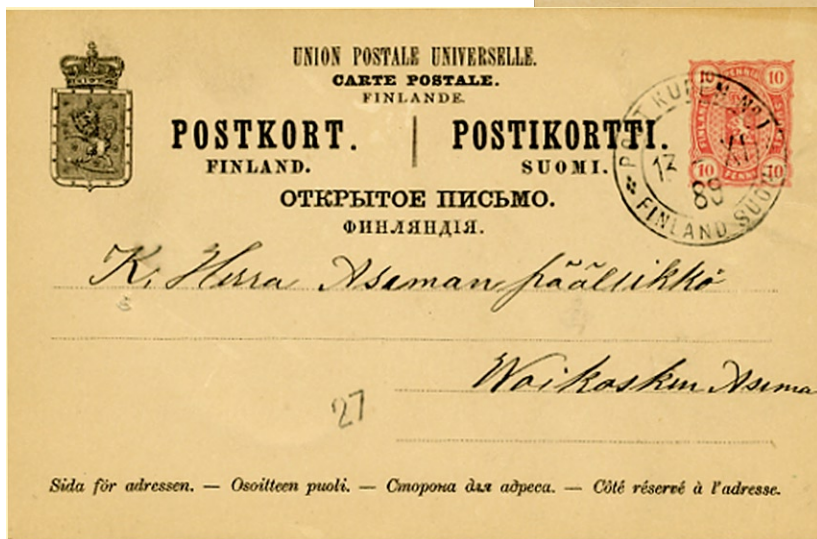 UNION POSTALE UNIVERSELLE.
CARTE POSTALE.
FINLANDE.
POSTKORT. | POSTIKORTTI.
FINLAND. SUOMI.
ОТКРЫТОЕ ПИСЬМО.
ФИНЛЯНДІЯ.
10 PENNIÄ 10
10 PENNI 10
FINLAND
POSTKUPEN No 1
13 XI
89
FINLAND SUOMI
K. Herra Aseman päällikkö
Woikosken Asema
27
Sida för adressen. — Osoitteen puoli. — Сторона для адреса. — Côté réservé à l'adresse.